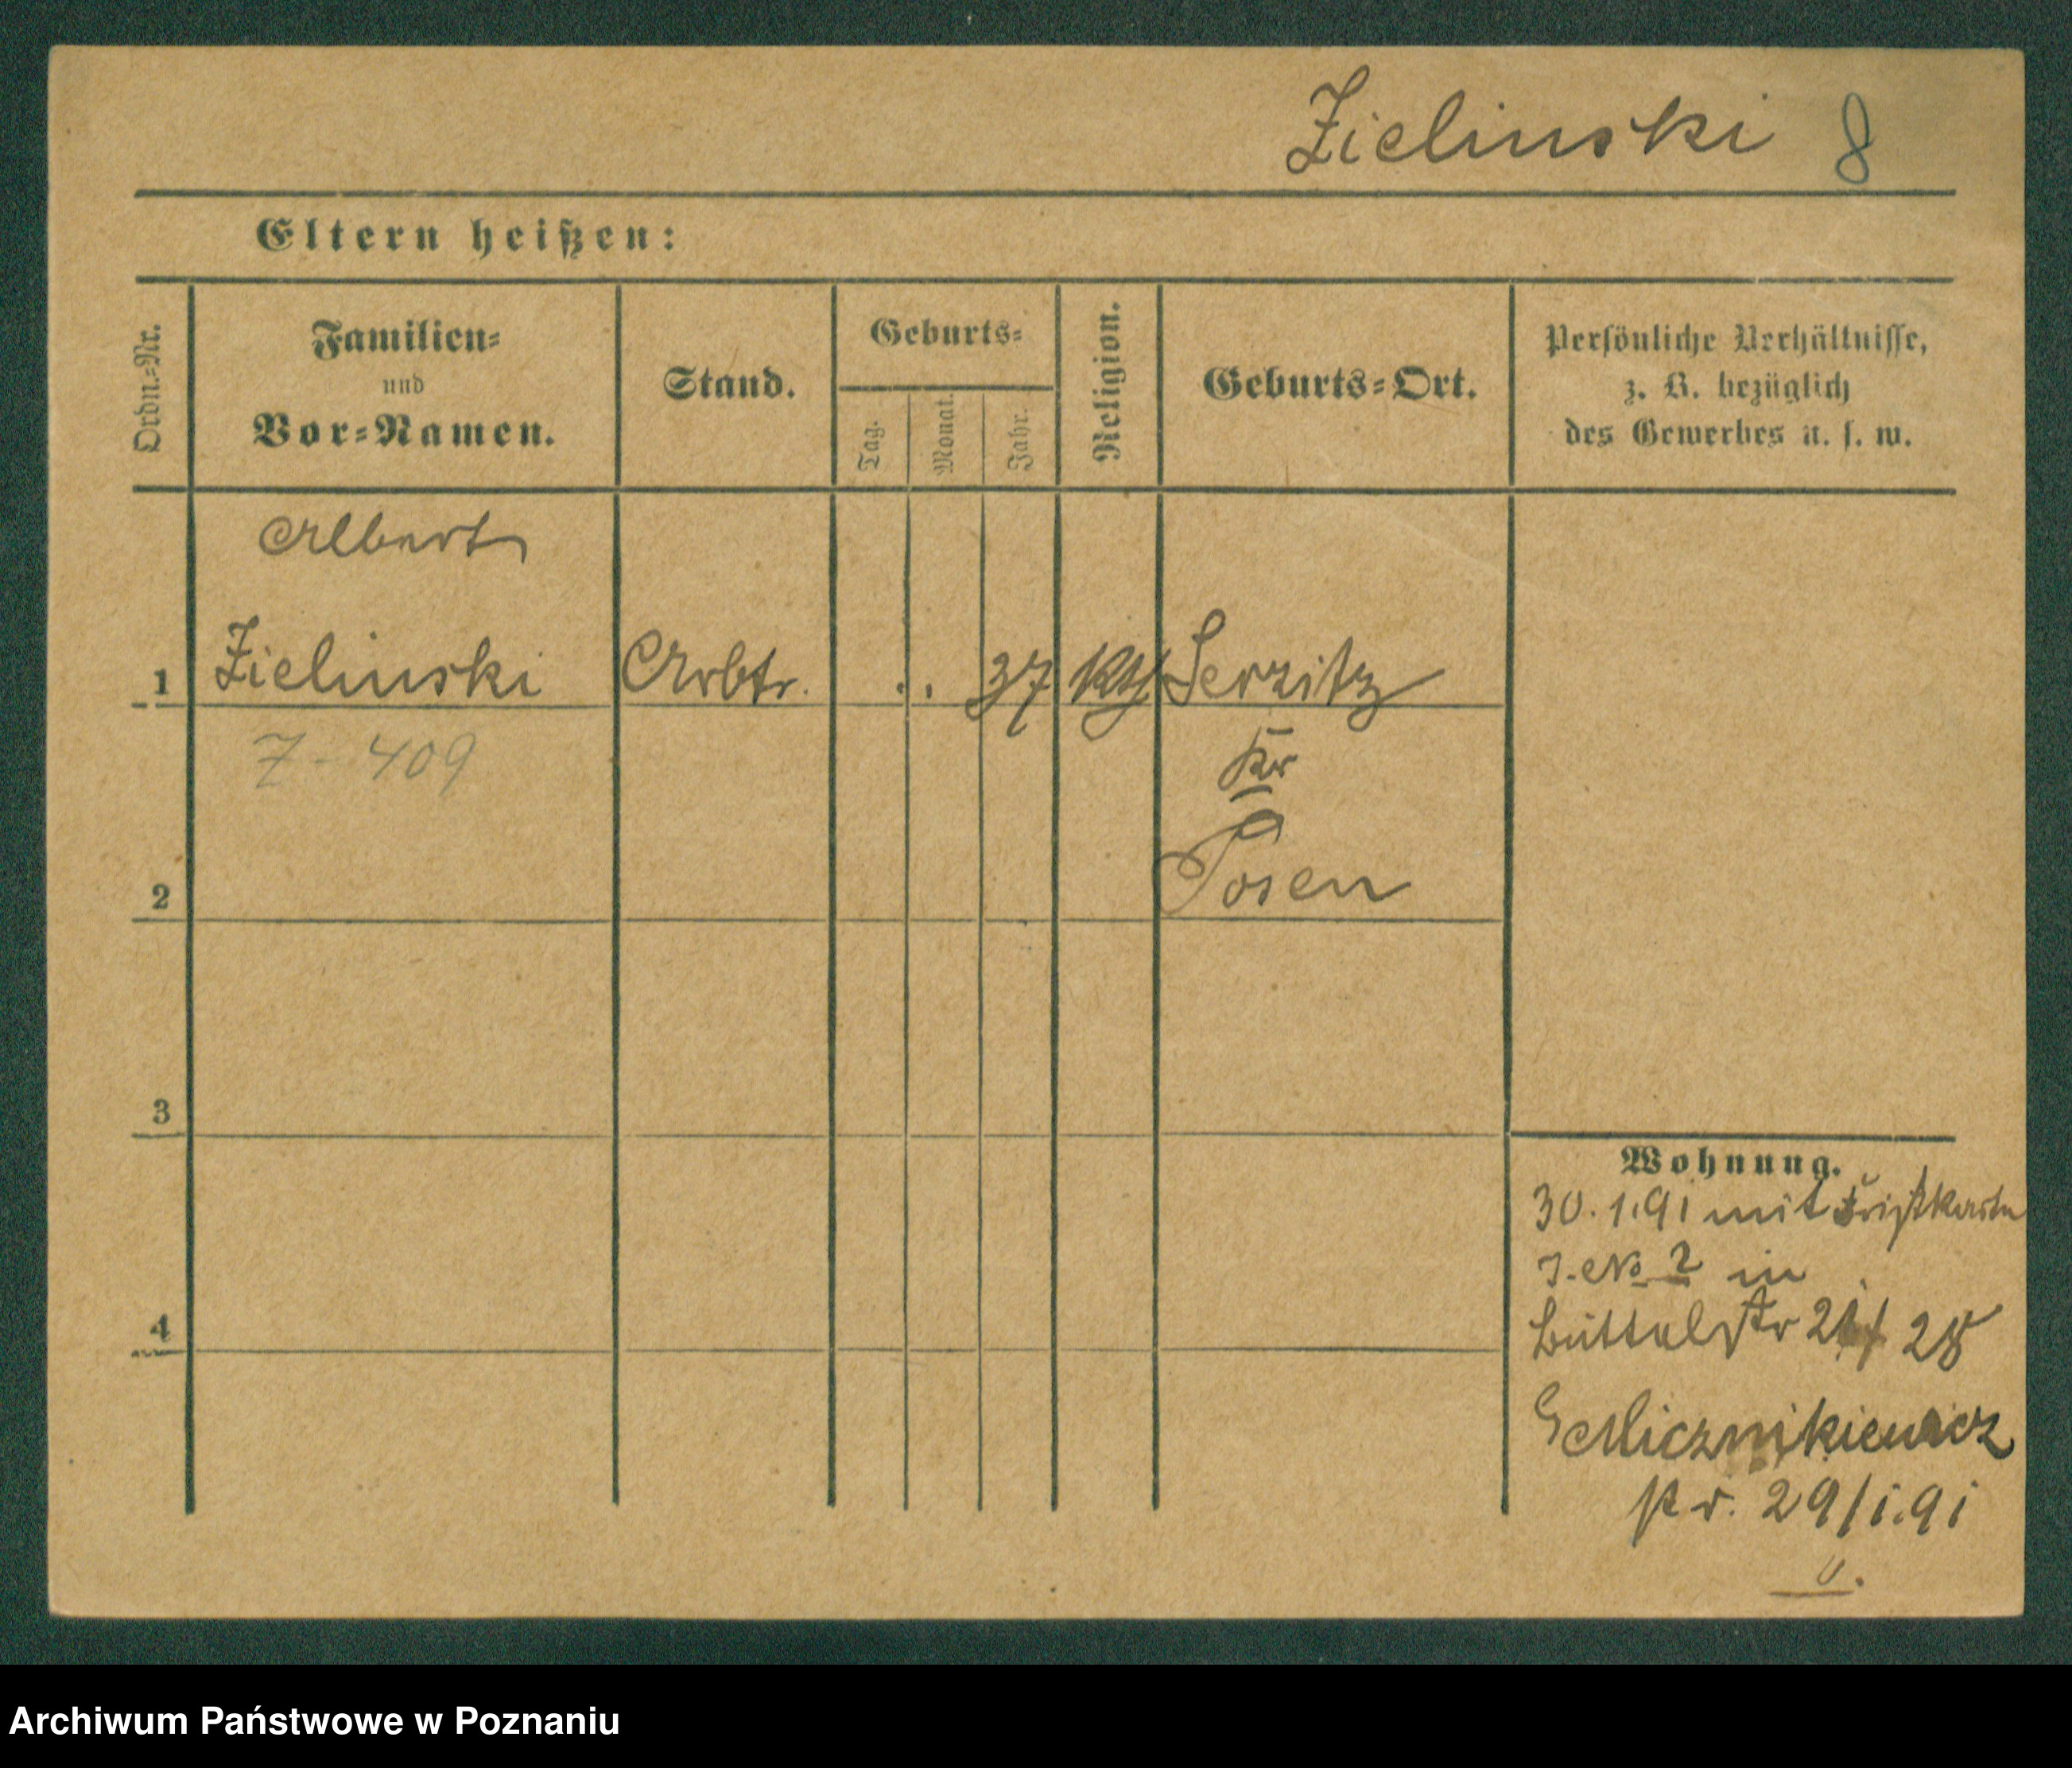 Zielinski 8
Eltern heißen:
Ordn.-Nr.
Familien-
und
Vor-Namen.
Stand.
Geburts-
Tag.
Monat.
Jahr.
Religion.
Geburts-Ort.
Persönliche Verhältnisse,
z. B. bezüglich
des Gewerbes u. s. w.
Albert
1 Zielinski Arbtr. . . 37 Kth Serzitz
Z - 409
Kr
2 Posen
3
4
Wohnung.
30.1.91 mit
J. No 2 in
Büttelstr 28
Micznikiewicz
Pr. 29/1.91
Archiwum Państwowe w Poznaniu